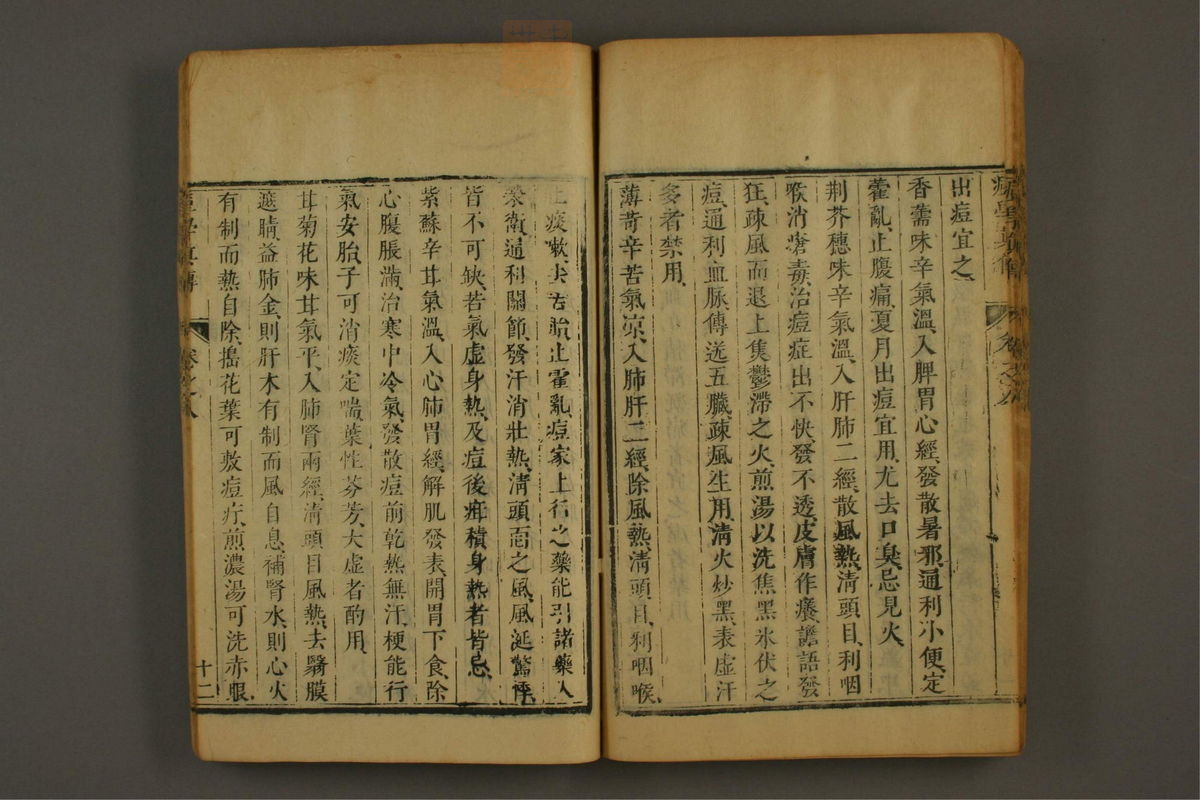 出痘宜之
香薷味辛氣溫入脾胃心經發散暑邪通利小便定
霍亂止腹痛夏月出痘宜用尤去口臭忌見火
荆芥穗味辛氣溫入肝肺二經散風熱清頭目利咽
喉消瘡毒治痘症出不快發不透皮膚作癢譫語發
狂疎風而退上焦鬱滯之火煎湯以洗焦黑氷伏之
痘通利血脉傳送五臟疎風生用清火炒黑表虛汗
多者禁用
薄荷辛苦氣凉入肺肝二經除風熱清頭目利咽喉
止痰嗽去舌胎止霍亂痘家上行之藥能引諸藥入
榮衛通利關節發汗消壯熱清頭面之風風涎驚悸
皆不可缺若氣虛身熱及痘後疳積身熱者皆忌
紫蘇辛甘氣溫入心肺胃經解肌發表開胃下食除
心腹脹滿治寒中冷氣發散痘前乾熱無汗梗能行
氣安胎子可消痰定喘葉性芬芳大虛者酌用
甘菊花味甘氣平入肺腎兩經清頭目風熱去翳膜
遮睛益肺金則肝木有制而風自息補腎水則心火
有制而熱自除搗花葉可敷痘疔煎濃湯可洗赤眼
卷之八
十二